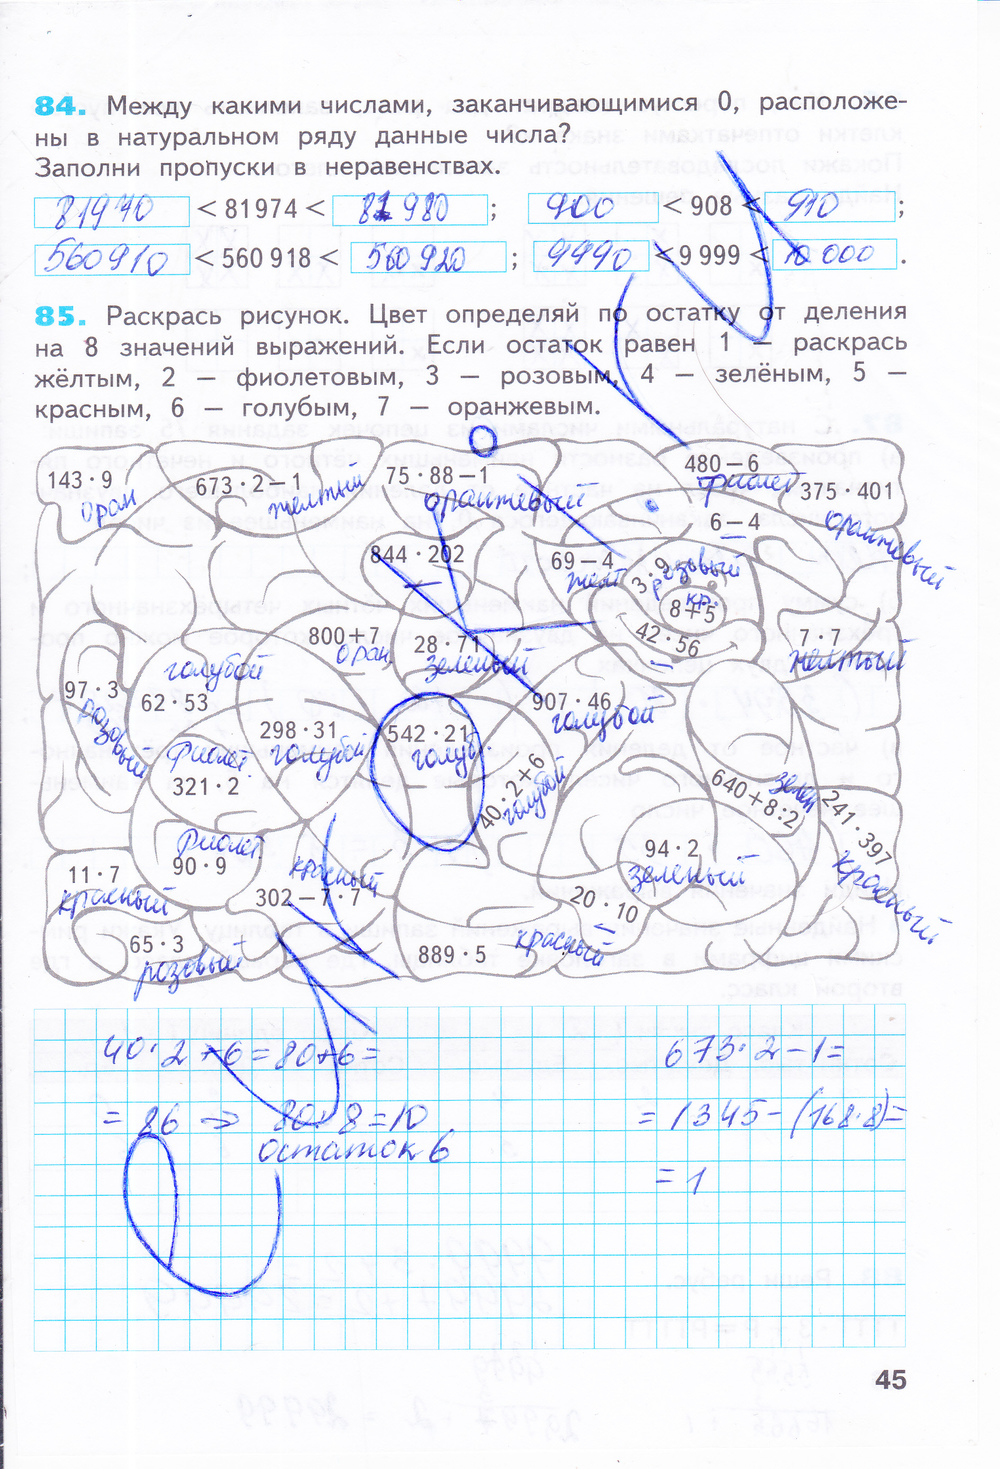 84. Между какими числами, заканчивающимися 0, расположе-
ны в натуральном ряду данные числа?
Заполни пропуски в неравенствах.
81970 < 81974 < 81980 ; 900 < 908 < 910 ;
560910 < 560 918 < 560920 ; 9990 < 9 999 < 10 000 .
85. Раскрась рисунок. Цвет определяй по остатку от деления
на 8 значений выражений. Если остаток равен 1 — раскрась
жёлтым, 2 — фиолетовым, 3 — розовым, 4 — зелёным, 5 —
красным, 6 — голубым, 7 — оранжевым.
143 · 9
оран
673 · 2 − 1
желтый
75 · 88 − 1
оранжевый
480 − 6
фиолет
375 · 401
оранжевый
6 − 4
844 · 202
69 − 4
желт
3 · 9
розовый
кр.
8 + 5
42 · 56
800 + 7
оран
28 · 71
зеленый
7 · 7
желтый
голубой
97 · 3
розовый
62 · 53
907 · 46
голубой
298 · 31
голубой
542 · 21
голуб
Фиолет.
321 · 2
40 · 2 + 6
голубой
640 + 8 : 2
зелен
241 · 397
красный
Фиолет.
90 · 9
94 · 2
зеленый
11 · 7
красный
красный
302 − 7 · 7
20 · 10
65 · 3
розовый
889 · 5
красный
40 · 2 + 6 = 80 + 6 =
673 · 2 − 1 =
= 86 ⇒ 80 : 8 = 10
= 1345 − (168 · 8) =
остаток 6
= 1
45